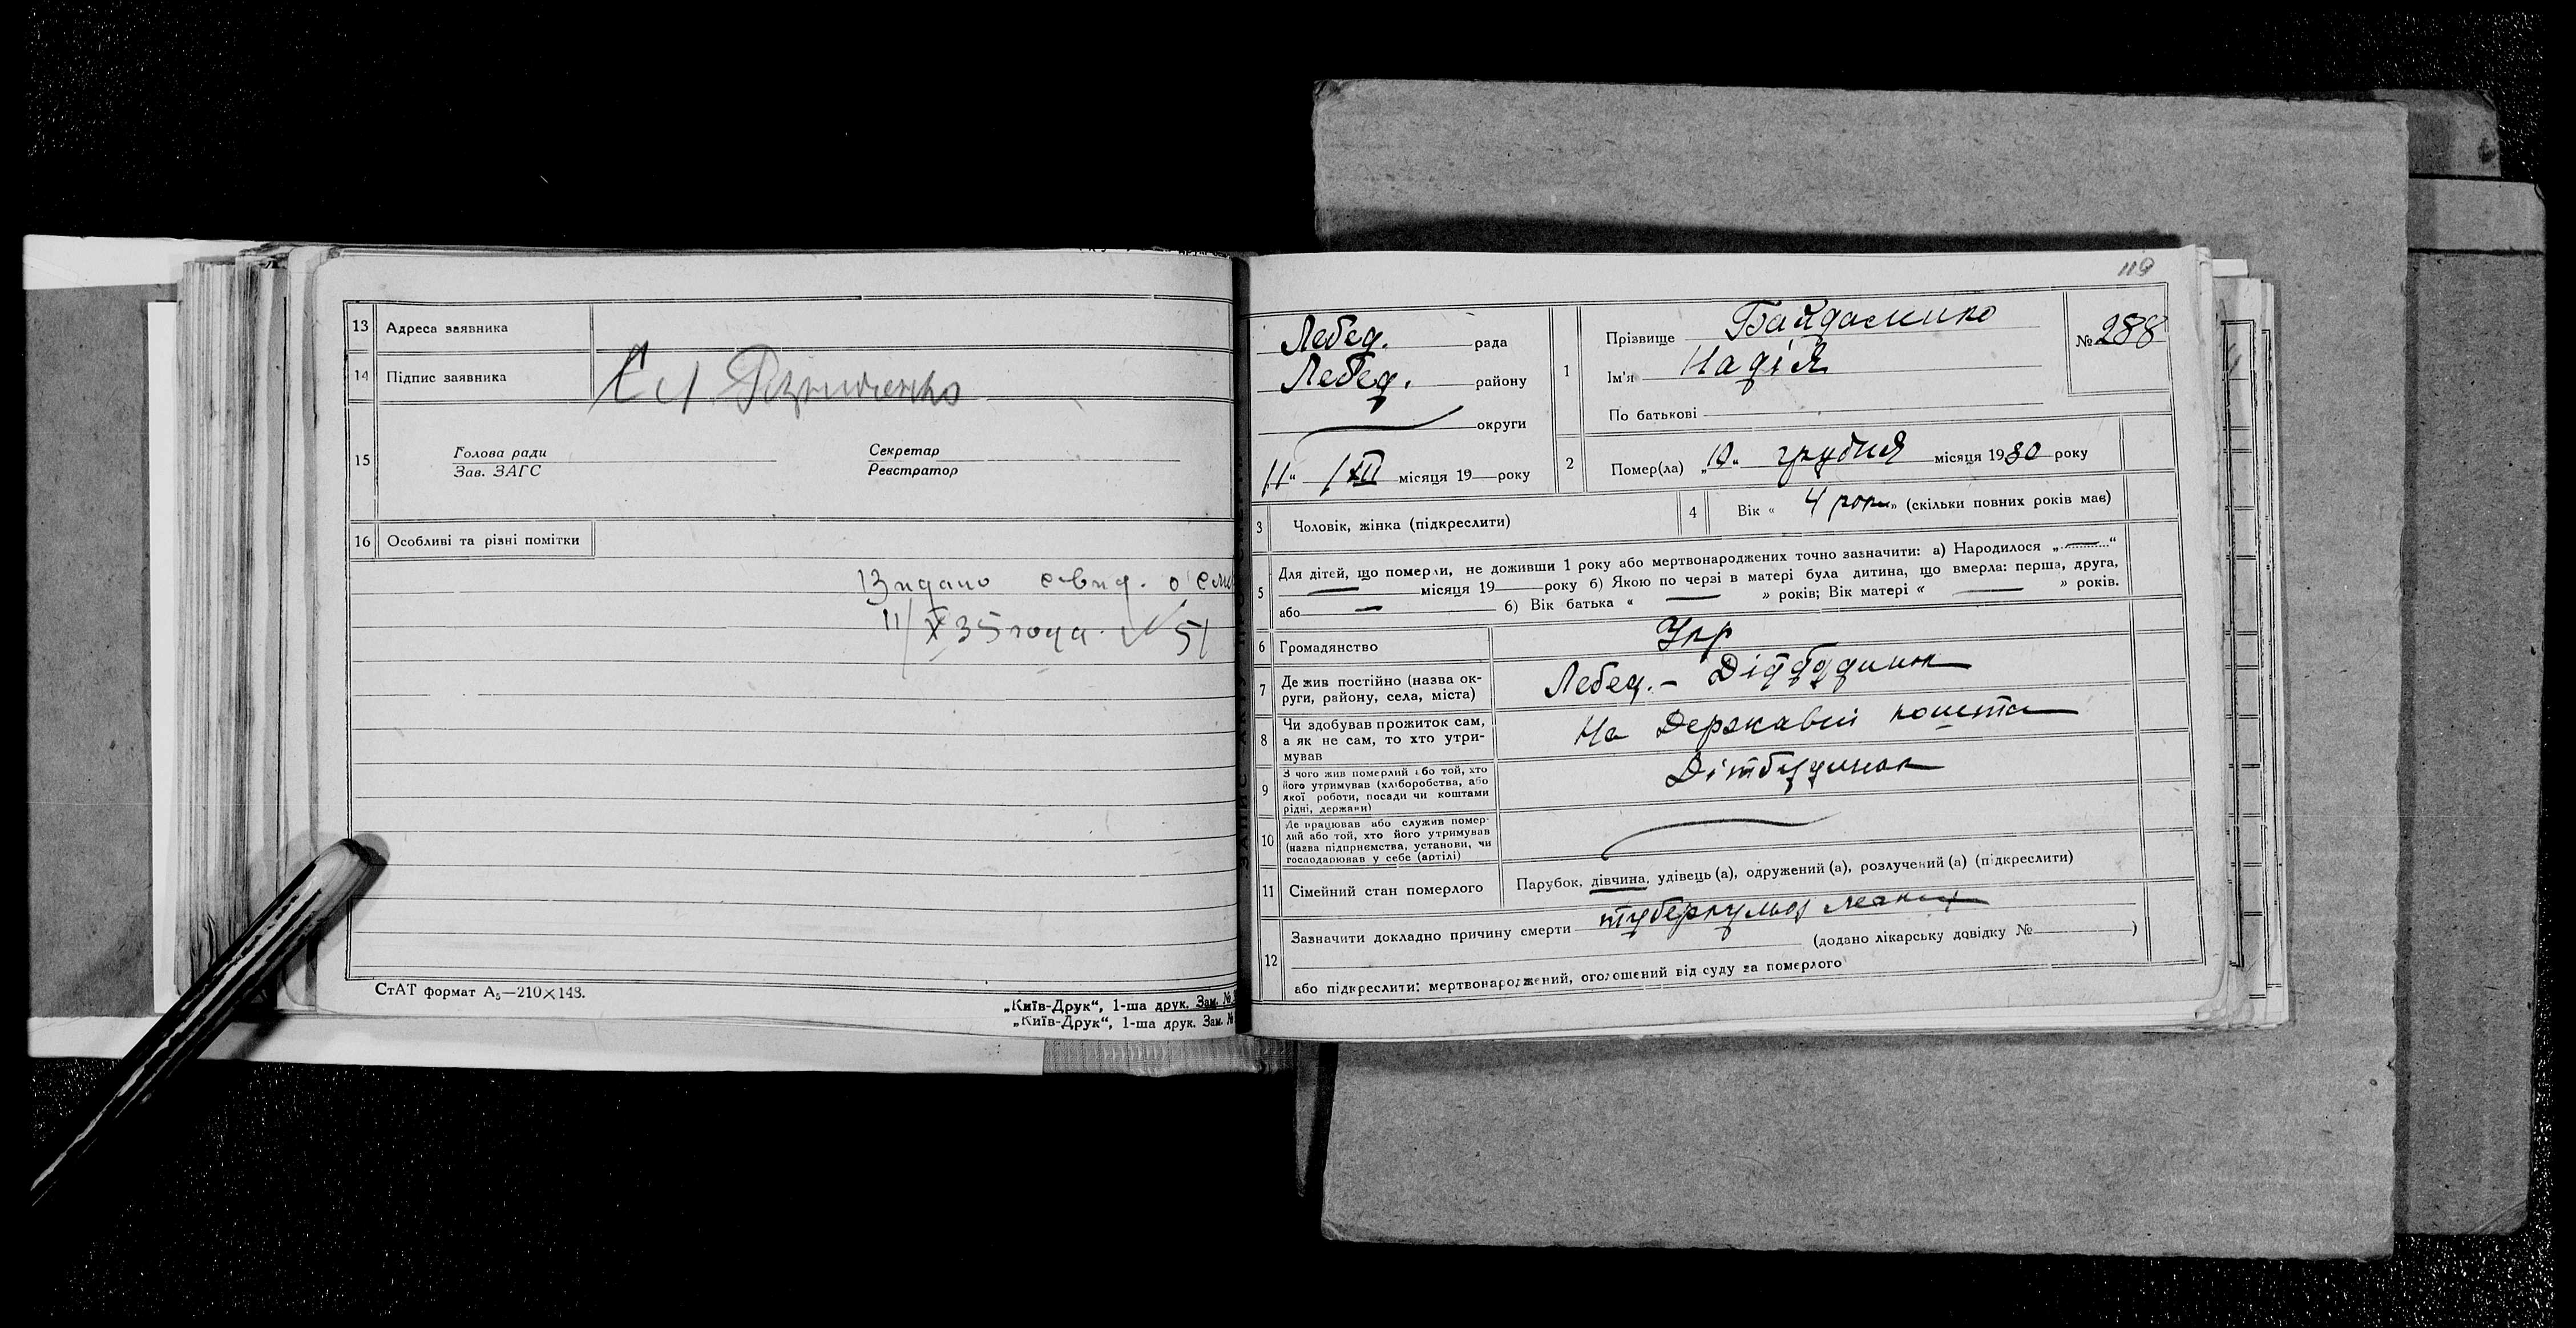 13 Адреса заявника
14 Підпис заявника
15 Голова ради Секретар
Зав. ЗАГС Реєстратор
16 Особливі та різні помітки
Видано свид. о сме
11/X 35 года. № 51
СтАТ формат А₅—210×148.
„Київ-Друк“, 1-ша друк. Зам. №
„Київ-Друк“, 1-ша друк. Зам. №
119
Лебед. рада
Лебед. району
округи
„11“ XII місяця 19 року
1 Прізвище Байдаченко
Ім'я Надія
По батькові
№ 288
2 Помер(ла) „10“ грудня місяця 1930 року
3 Чоловік, жінка (підкреслити)
4 Вік « 4 роки » (скільки повних років має)
5 Для дітей, що померли, не доживши 1 року або мертвонароджених точно зазначити: а) Народилося „—“
— місяця 19— року б) Якою по черзі в матері була дитина, що вмерла: перша, друга,
або — б) Вік батька « — » років; Вік матері « — » років.
6 Громадянство Укр
7 Де жив постійно (назва ок-
руги, району, села, міста) Лебед. – Дідбудинок
8 Чи здобував прожиток сам,
а як не сам, то хто утри-
мував На Державні кошти
9 З чого жив померлий або той, хто
його утримував (хліборобства, або
якої роботи, посади чи коштами
рідні, держави) Дітбудинок
10 Де працював або служив помер-
лий або той, хто його утримував
(назва підприємства, установи, чи
господарював у себе (артілі)
11 Сімейний стан померлого Парубок, дівчина, удівець (а), одружений (а), розлучений (а) (підкреслити)
12 Зазначити докладно причину смерти туберкульоз легких
(додано лікарську довідку № )
або підкреслити: мертвонароджений, оголошений від суду за померлого